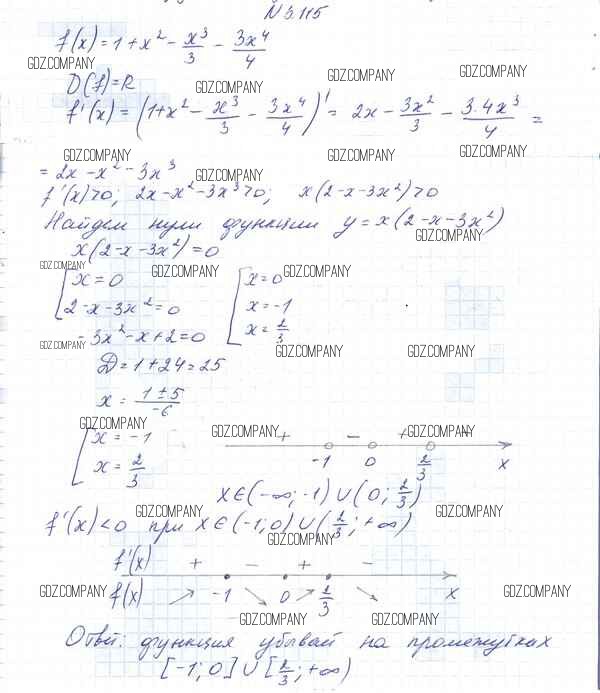 N 5.115
f(x) = 1 + x² - x³/3 - 3x⁴/4
GDZ.COMPANY GDZ.COMPANY GDZ.COMPANY
D(f) = R GDZ.COMPANY
f'(x) = (1 + x² - x³/3 - 3x⁴/4)' = 2x - 3x²/3 - 3·4x³/4 =
GDZ.COMPANY GDZ.COMPANY GDZ.COMPANY
= 2x - x² - 3x³ GDZ.COMPANY
f'(x) > 0; 2x - x² - 3x³ > 0; x(2 - x - 3x²) > 0
Найдем нули функции y = x(2 - x - 3x²)
GDZ.COMPANY
x(2 - x - 3x²) = 0
GDZ.COMPANY GDZ.COMPANY GDZ.COMPANY
[ x = 0 [ x = 0
2 - x - 3x² = 0 x = -1
-3x² - x + 2 = 0 x = 2/3
GDZ.COMPANY GDZ.COMPANY GDZ.COMPANY
D = 1 + 24 = 25
x = (1 ± 5)/-6
GDZ.COMPANY GDZ.COMPANY GDZ.COMPANY
[ x = -1 + - + -
x = 2/3 -1 0 2/3 x
x ∈ (-∞; -1) ∪ (0; 2/3)
GDZ.COMPANY GDZ.COMPANY
f'(x) < 0 при x ∈ (-1; 0) ∪ (2/3; +∞)
GDZ.COMPANY GDZ.COMPANY
f'(x) + - + -
GDZ.COMPANY GDZ.COMPANY GDZ.COMPANY
f(x) ↗ -1 ↘ 0 ↗ 2/3 ↘ x
GDZ.COMPANY GDZ.COMPANY
Ответ: функция убывай на промежутках
[-1; 0] ∪ [2/3; +∞)